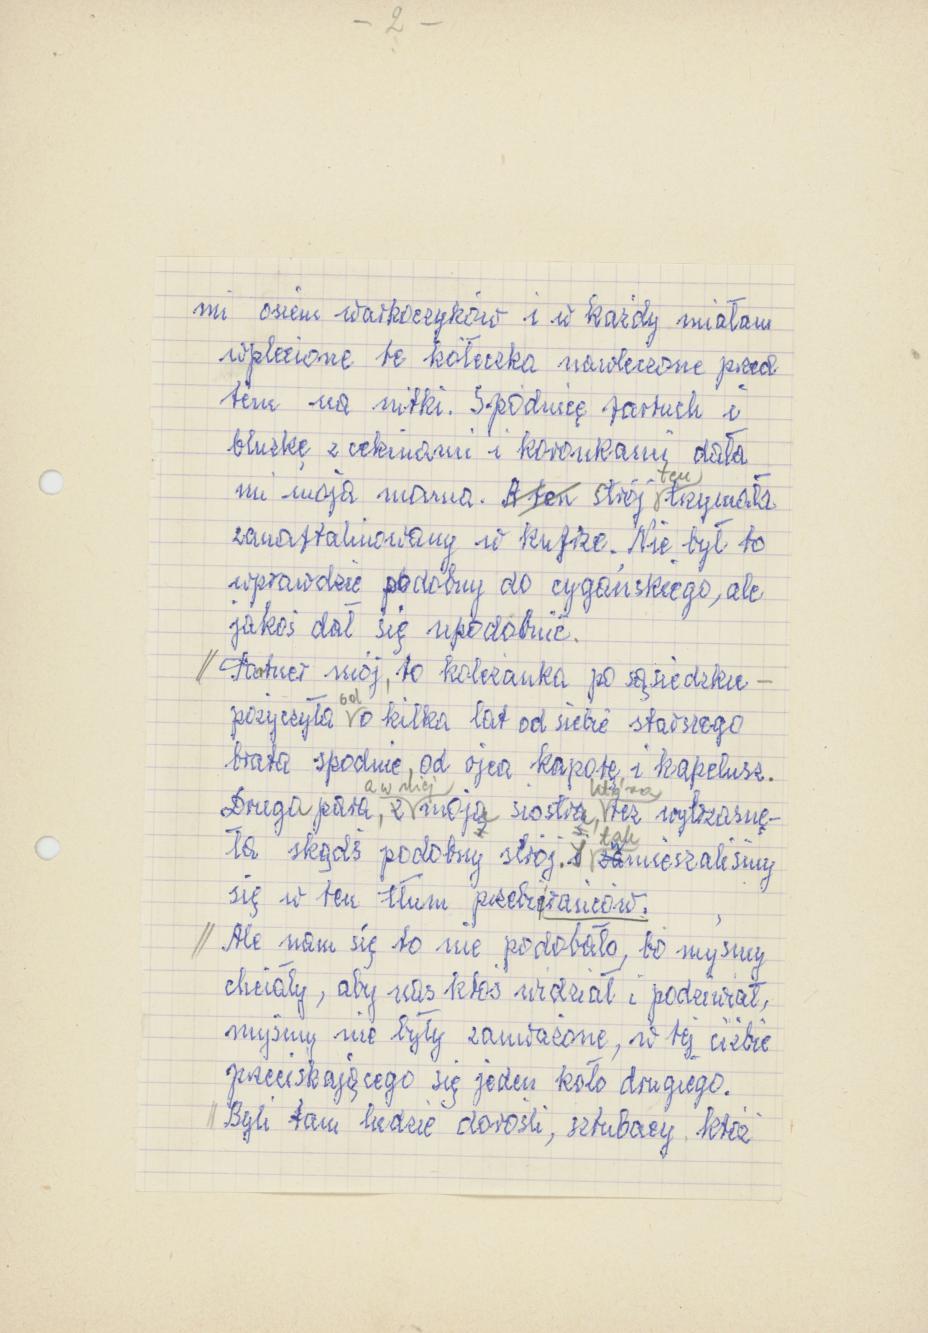 - 2 -
mi osiem warkoczyków i w każdy miałam
wplecione te kółeczka nawleczone przed
tem na nitki. Spódnicę fartuch i
bluzkę z cekinami i koronkami dała
mi moja mama. A ten strój ten trzymała
zanaftalinowany w kufrze. Nie był to
wprawdzie podobny do cygańskiego, ale
jakoś dał się upodobnić.
// Partner mój, to koleżanka po sąsiedzku –
pożyczyła od o kilka lat od siebie starszego
brata spodnie, od ojca kapotę i kapelusz.
Druga para, a w niej z moją siostrą, która też wytrzasnę-
ła skądś podobny strój. I tak zamieszaliśmy
się w ten tłum przebierańców.
// Ale nam się to nie podobało, bo myśmy
chciały, aby nas ktoś widział i podziwiał,
myśmy nie były zauważone, w tej ciżbie
przeciskającego się jeden koło drugiego.
// Byli tam ludzie dorośli, sztubacy, któż